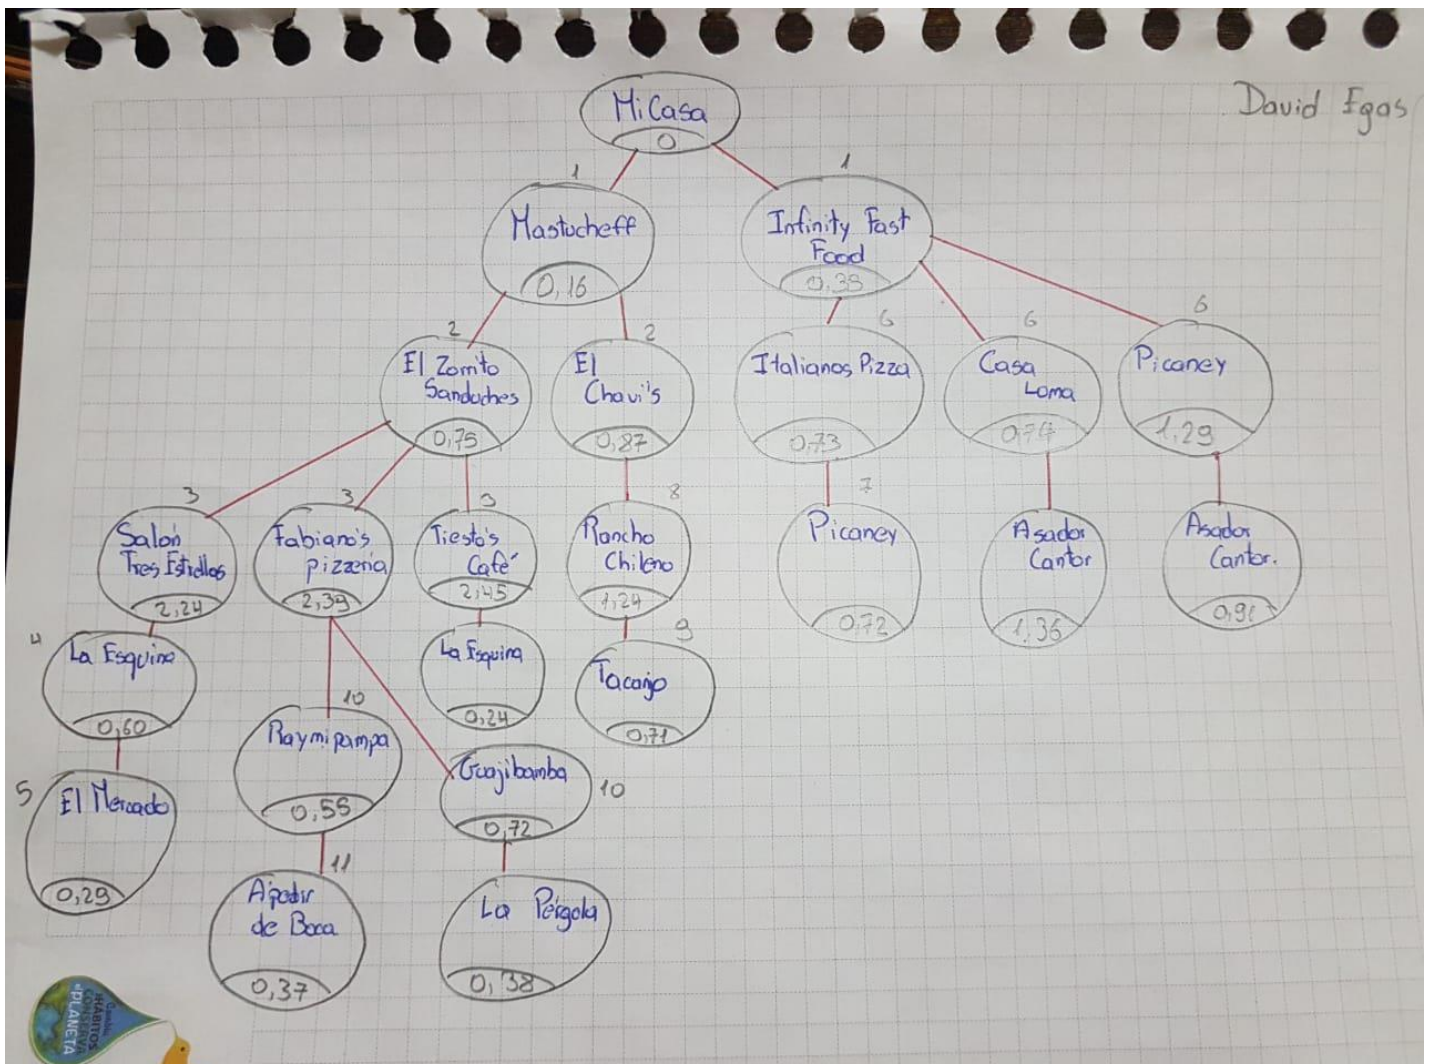 David Egas
Mi Casa
0
1
1
Mastucheff
0,16
Infinity Fast
Food
0,39
2
2
6
6
6
El Zorrito
Sanduches
0,75
El
Chavi's
0,87
Italianos Pizza
0,73
Casa
Loma
0,74
Picaney
1,29
3
3
3
8
7
Salón
Tres Estrellas
2,24
Fabiano's
pizzería
2,39
Tiesto's
Café
2,45
Rancho
Chileno
1,24
Picaney
0,72
Asador
Cantor
1,36
Asador
Cantor.
0,91
4
9
La Esquina
0,60
La Esquina
0,24
Tacaño
0,71
10
10
Raymipampa
0,55
Guajibamba
0,72
5
El Mercado
0,29
11
A pedir
de Boca
0,37
La Pérgola
0,38
Cambia
HÁBITOS
CONSERVA
el PLANETA